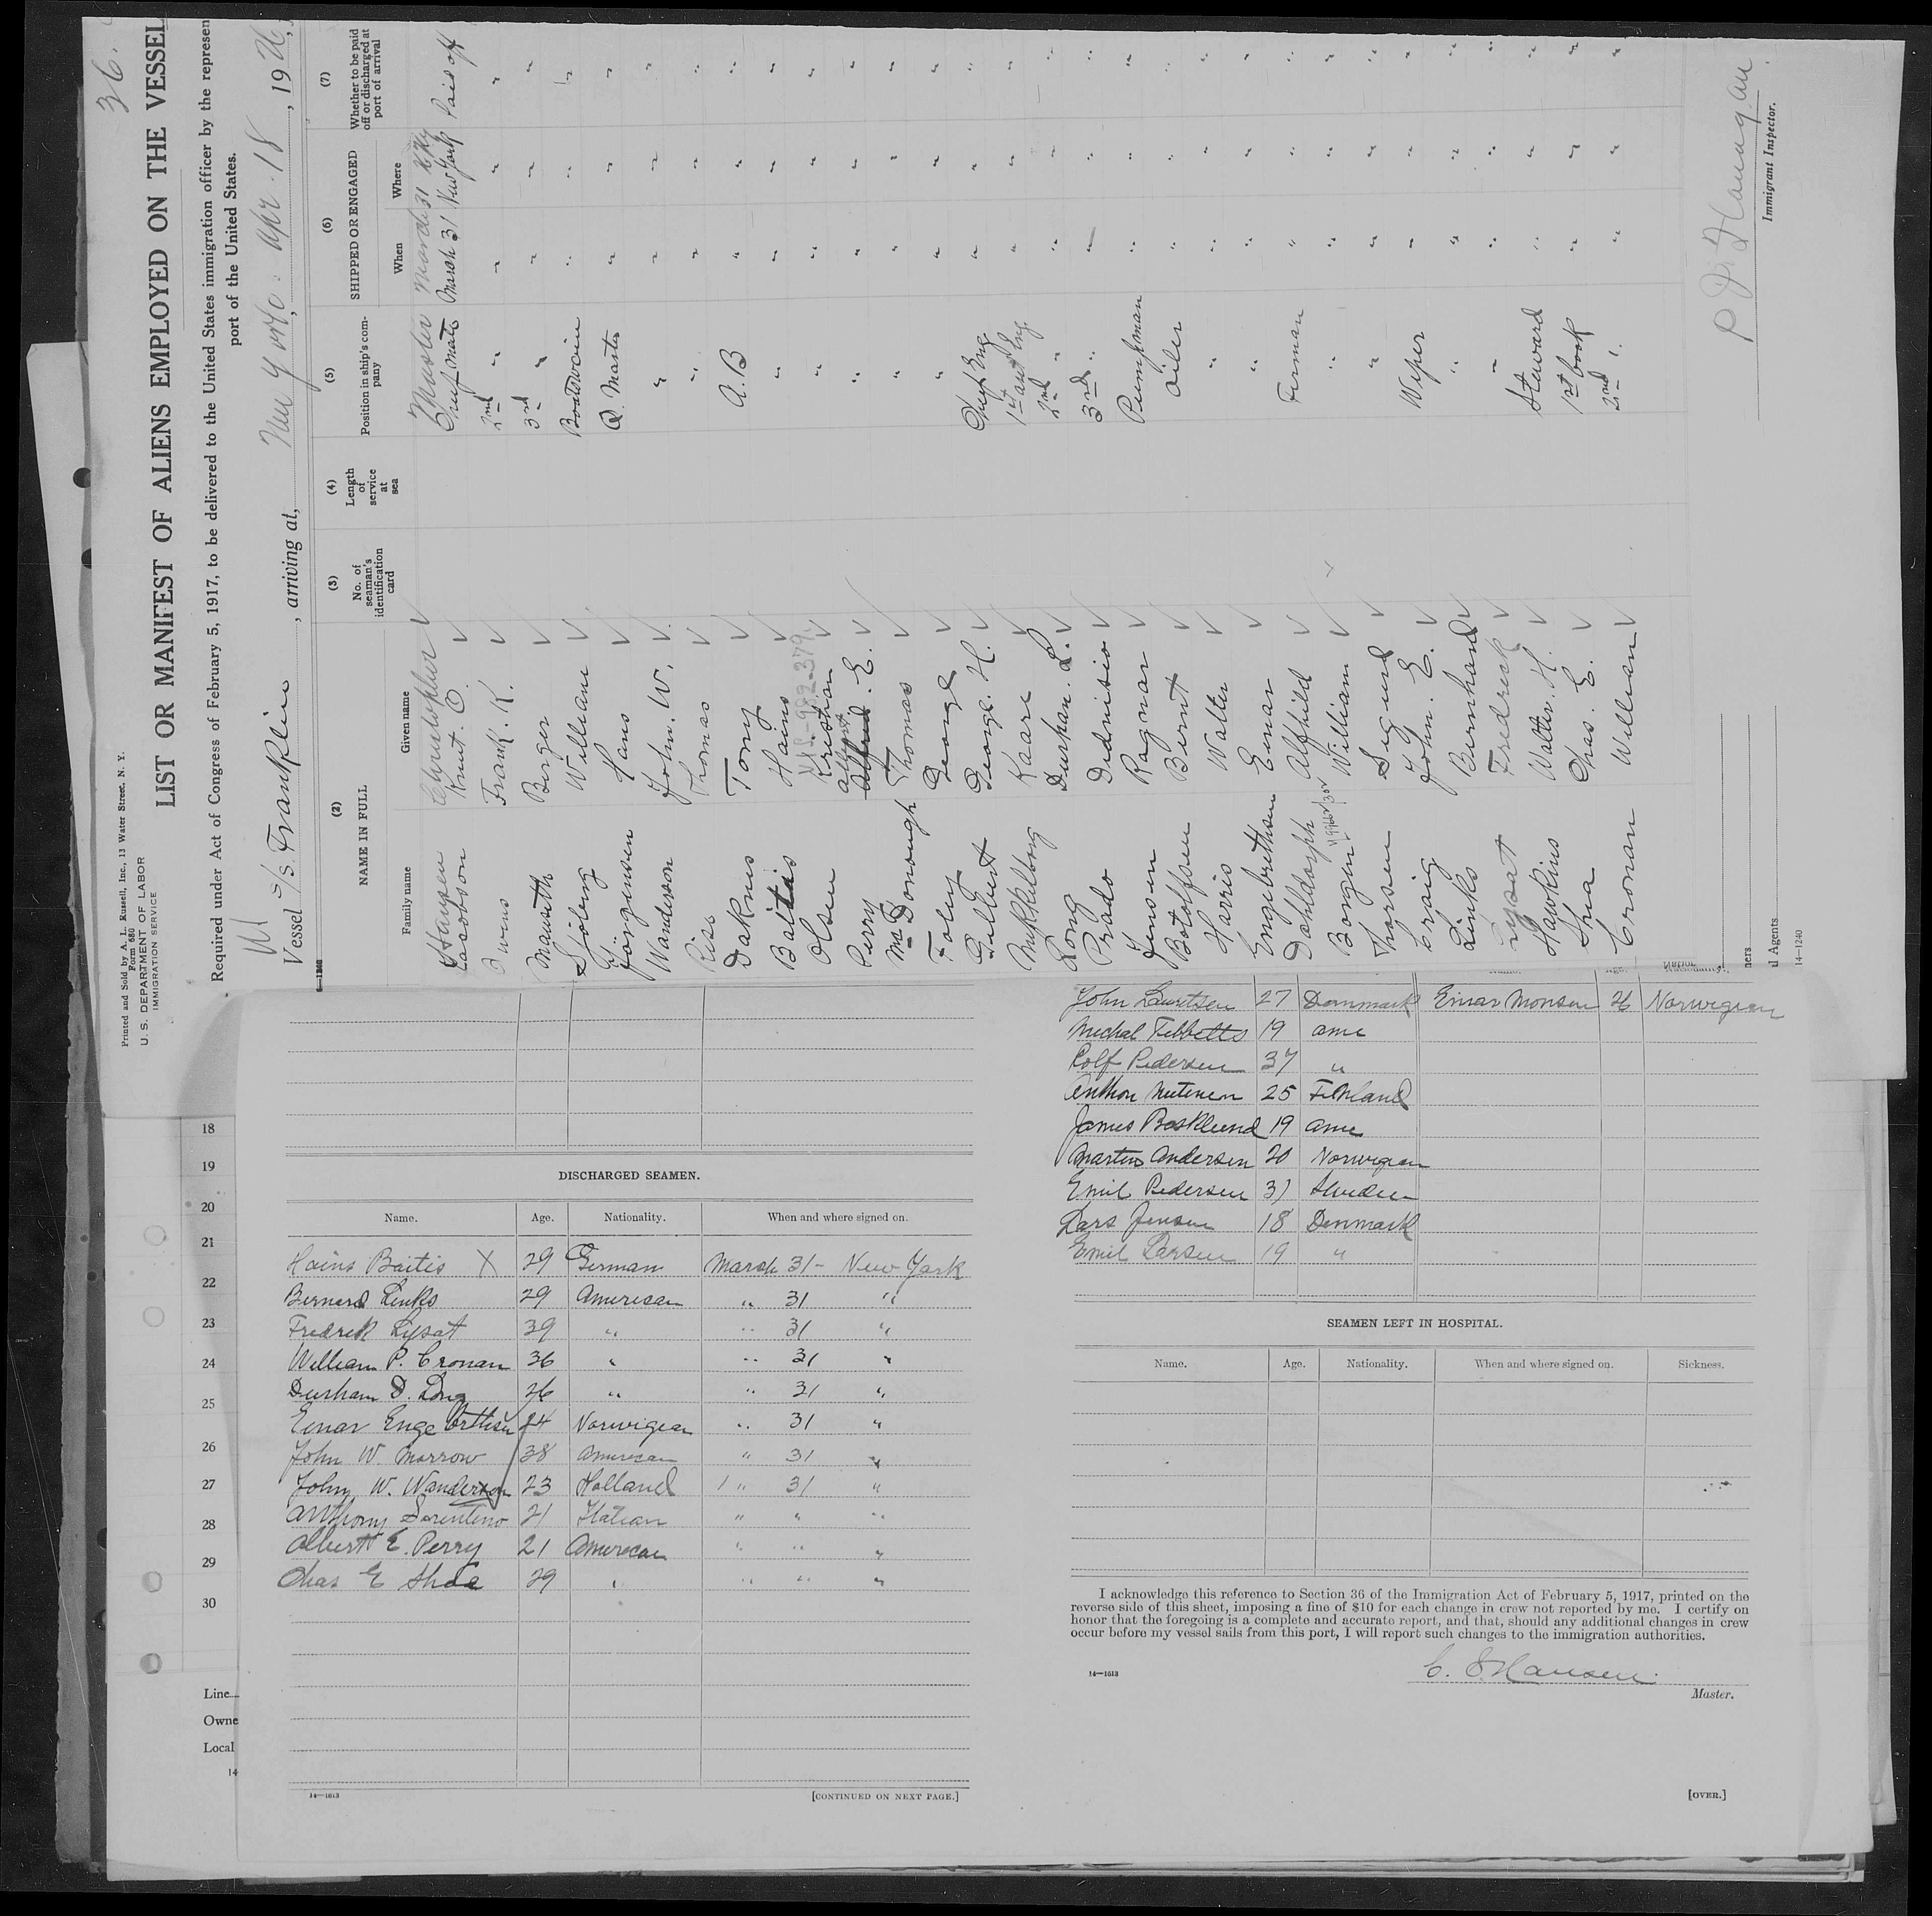 36.
Printed and Sold by A. L. Russell, Inc., 13 Water Street, N. Y.
Form 680
U. S. DEPARTMENT OF LABOR
IMMIGRATION SERVICE
LIST OR MANIFEST OF ALIENS EMPLOYED ON THE VESSEL
Required under Act of Congress of February 5, 1917, to be delivered to the United States immigration officer by the represen
port of the United States.
Vessel S/S. Franklin, arriving at, New York: Apr. 18, 1926,
(2) (3) (4) (5) (6) (7)
NAME IN FULL No. of seaman's identification card Length of service at sea Position in ship's company SHIPPED OR ENGAGED Whether to be paid off or discharged at port of arrival
Family name Given name When Where
Hansen Christopher Master March 31 N.Y.
Jacobson Knut. O. Chief mate March 31 New York Paid off
Owens Frank. K. 2nd " " " "
Birger 3rd " " " "
Sjöberg William Boatswain " " "
Jörgensen Hans Q. Master " " "
Wanderson John. W. " " " "
Riss Thomas " " " "
Daknis Tony A.B " " "
Baitis Hains " " " "
Olsen Kristian " " " "
Perry Albert Alfred. E. " " " "
McDonough Thomas " " " "
Foley George " " " "
Gulbert George. H. Chief Eng " " "
Mykkelborg Kaare 1st asst Eng. " " "
Long Durham. L. 2nd " " " "
Prado Dionisio 3rd " " " "
Jensen Ragnar Pumpman " " "
Botolfsen Bernt Oiler " " "
Harris Walter " " " "
Engebrethsen Einar " " " "
Dahldorph Alfhild Fireman " " "
Bongin William " " " "
Thorsen Sigurd " " " "
Craig John. E. Wiper " " "
Links Bernhand " " " "
Lysat Fredrick " " " "
Hawkins Walter. H. Steward " " "
Shea Chas. E. 1st cook " " "
Cronan William 2nd " " " "
Immigrant Inspector.
ners
d Agents
14—1240
18
19
20
21
22
23
24
25
26
27
28
29
30
Line
Owne
Local
14
DISCHARGED SEAMEN.
Name. Age. Nationality. When and where signed on.
Hains Baitis X 29 German March 31- New York
Bernard Links 29 American " 31 "
Fredrek Lysat 39 " " 31 "
William P. Cronan 36 " " 31 "
Durham D. Long 26 " " 31 "
Einar Engebrethsen 24 Norwigean " 31 "
John W. Morrow 38 American " 31 "
John W. Wanderson 23 Holland " 31 "
Anthony Sorentino 21 Italian " " "
Albert E. Perry 21 American " " "
Chas E Shea 29 " " " "
14—1613
[CONTINUED ON NEXT PAGE.]
John Lauritsen 27 Denmark Einar Monsen 26 Norwigean
Michal Tibbetts 19 ame
Rolf Pedersen 37 "
Anthon Nutinen 25 Finland
James Bosklund 19 ame
Martin Andersen 20 Norwigean
Emil Pedersen 31 Sweden
Lars Jensen 18 Denmark
Emil Larsen 19 "
SEAMEN LEFT IN HOSPITAL.
Name. Age. Nationality. When and where signed on. Sickness.
I acknowledge this reference to Section 36 of the Immigration Act of February 5, 1917, printed on the
reverse side of this sheet, imposing a fine of $10 for each change in crew not reported by me. I certify on
honor that the foregoing is a complete and accurate report, and that, should any additional changes in crew
occur before my vessel sails from this port, I will report such changes to the immigration authorities.
14—1613
C. S. Hansen.
Master.
[OVER.]